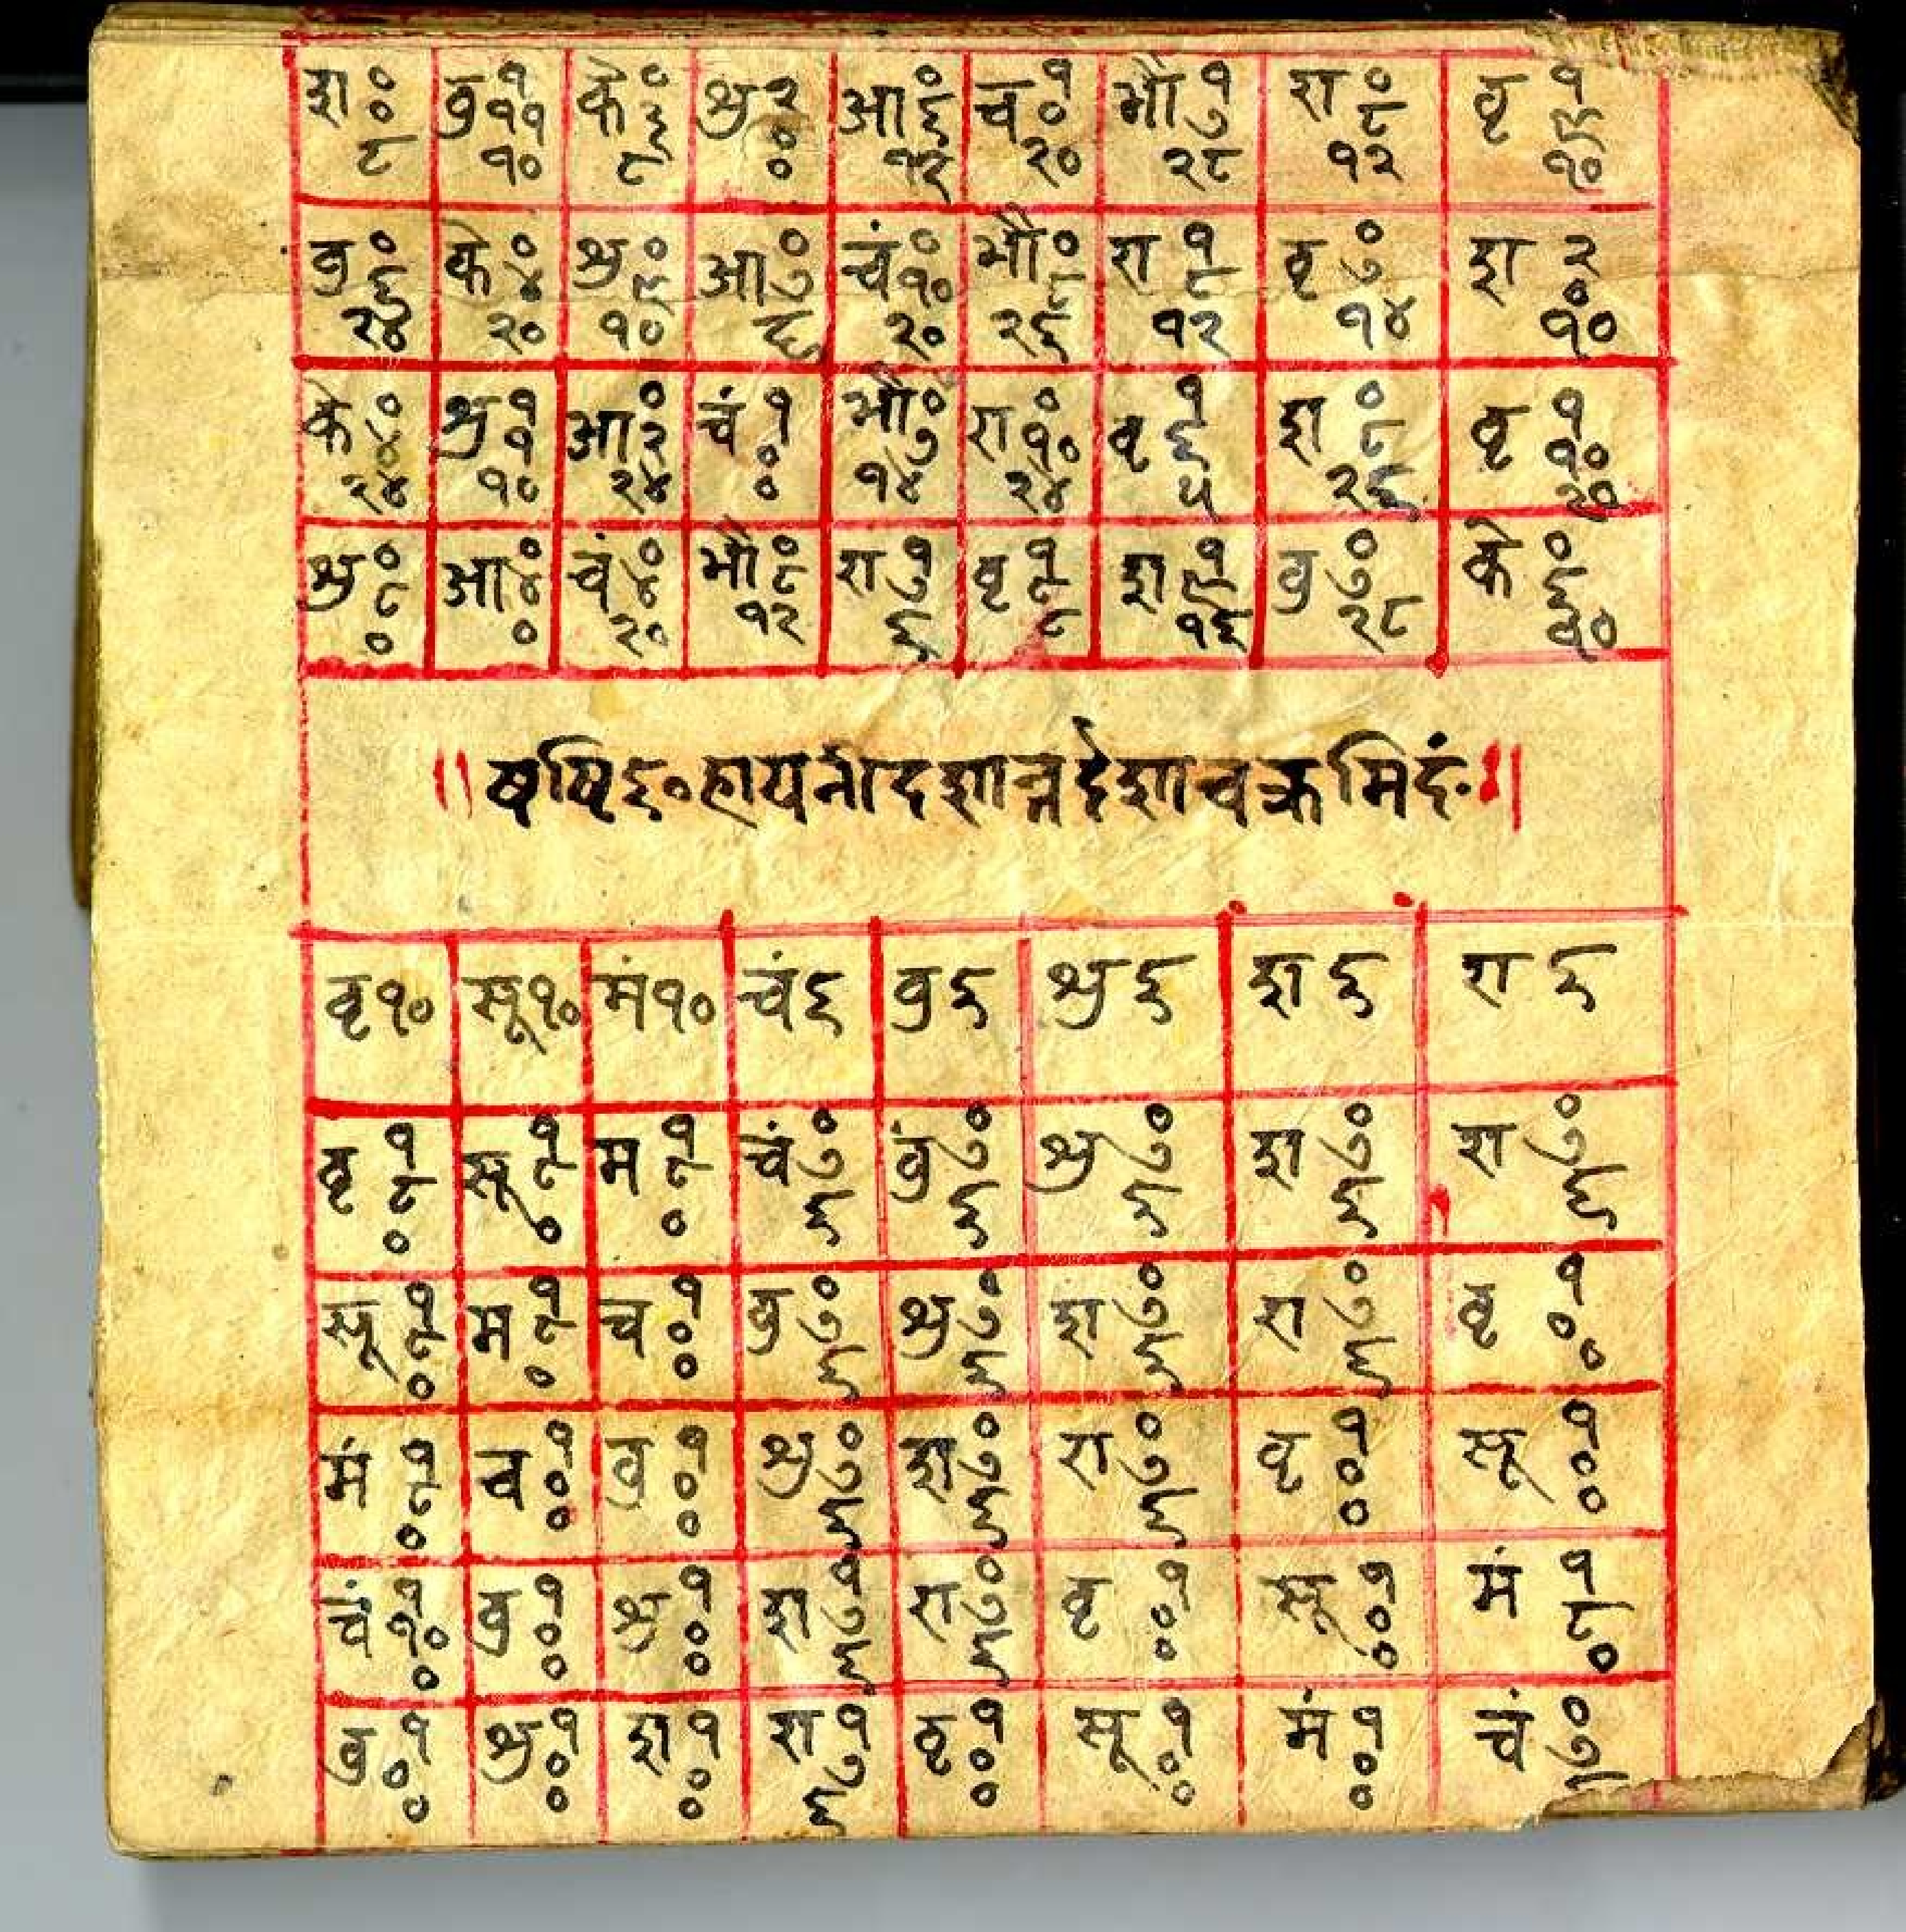 श ० ० ८ बु १ ११ १० के ० ३ ८ शु २ ० ० आ ० ६ १२ च १ ० २० भौ १ ७ २८ रा ० ८ १२ वृ १ ९ १०
बु ० ६ २४ के ० ४ २० शु ० ९ १० आ ० ७ ६ चं ० १० २० भौ ० ८ २६ रा १ ८ १२ वृ ० ७ १४ श २ ० १०
के ० ४ २४ शु १ १ १० आ ० २ २४ चं १ ० ० भौ ० ७ १४ रा ० १० २४ वृ १ ६ ५ श ० ८ २६ वृ १ १० २०
शु ० ८ ० आ ० ४ ० चं ० ४ २० भौ ० ८ १२ रा १ ७ ६ वृ १ ८ ८ श १ ९ १६ बु ० ७ २८ के ० ६ १०
॥ षष्टि६०हायनीदशान्तर्दशाचक्रमिदं ॥
वृ १० सू १० मं १० चं ६ बु ६ शु ६ श ६ रा ६
वृ १ ८ ० सू १ ८ ० म १ ८ ० चं ० ७ ६ बुं ० ७ ६ शु ० ७ ६ श ० ७ ६ रा ० ७ ६
सू १ ८ ० म १ ८ ० च १ ० ० बु ० ७ ६ शु ० ७ ६ श ० ७ ६ रा ० ७ ६ वृ १ ० ०
मं १ ८ ० च १ ० ० बु १ ० ० शु ० ७ ६ श ० ७ ६ रा ० ७ ६ वृ १ ० ० सू १ ० ०
चं १ १० ० बु १ ० ० शु १ ० ० श १ ७ ६ रा ० ७ ६ वृ १ ० ० सू १ ० ० मं १ ८ ०
बु १ ० ० शु १ ० ० श १ ० ० रा १ ७ ६ वृ १ ० ० सू १ ० ० मं १ ० ० चं ० ७